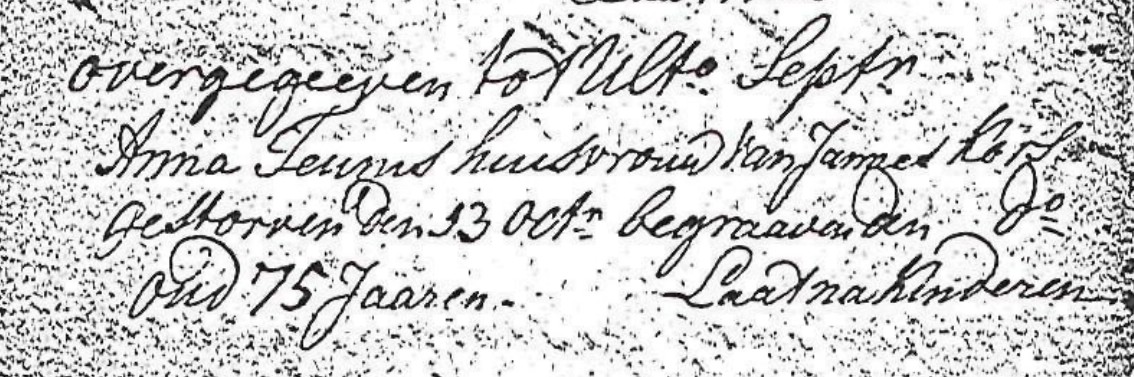 overgegeeven tot Ulto Septr
Anna Teunis huisvrouw van Jannes
gestorven den 13 Octr begraaven den do
oud 75 Jaaren.- Laat na kinderen